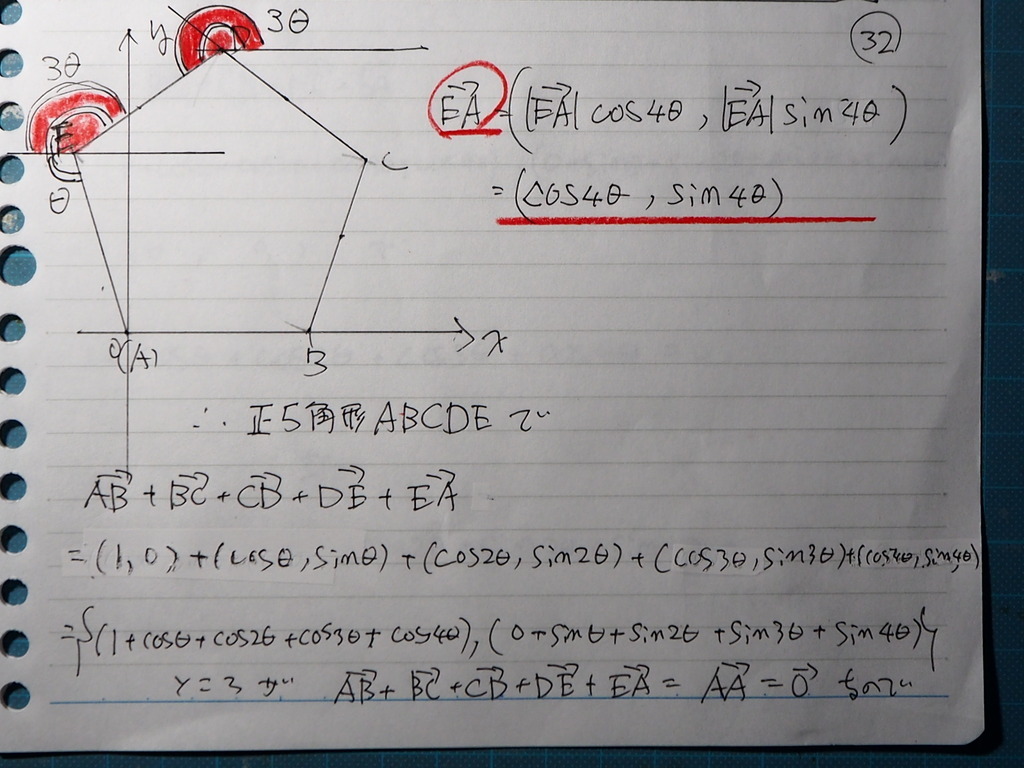 32
y
3θ
3θ
EA→ = (|EA→| cos4θ , |EA→| sin4θ)
D
E
C
θ
= (cos4θ , sin4θ)
x
O(A)
B
∴ 正5角形ABCDEで
AB→ + BC→ + CD→ + DE→ + EA→
= (1,0) + (cosθ, sinθ) + (cos2θ, sin2θ) + (cos3θ, sin3θ) + (cos4θ, sin4θ)
= {(1+cosθ+cos2θ+cos3θ+cos4θ), (0+sinθ+sin2θ+sin3θ+sin4θ)}
ところが AB→ + BC→ + CD→ + DE→ + EA→ = AA→ = 0→ なので